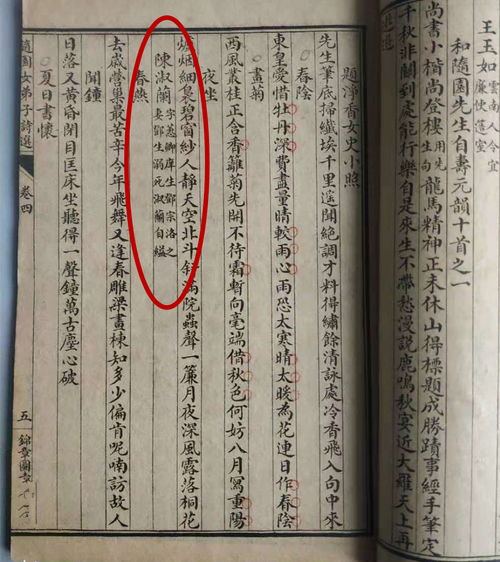 王玉如 雲間人令宜廉使蓬室
和隨園先生自壽元韻十首之一
尚書小楷尚登樓 用先生句 龍馬精神正未休山得標題成勝蹟事經手筆定
千秋非關到處能行樂自是來生不帶愁漫說鹿鳴秋宴近大羅天上再
題淨香女史小照
先生筆底掃纖埃千里遙聞絕調才料得繡餘清詠處冷香飛入句中來
春陰
東皇愛惜牡丹深費盡量晴較雨心雨恐太寒晴太暖為花連日作春陰
畫菊
西風叢桂正含香籬菊先開不待霜暫向毫端借秋色何妨八月寫重陽
夜坐
爐烟細裊碧窗紗人靜天空北斗斜滿院蟲聲一簾月夜深風露落桐花
陳淑蘭 字蕙卿庠生鄧宗洛之妻鄧生溺死淑蘭自縊
春燕
去歲營巢最苦辛今年飛舞又逢春雕梁畫棟知多少偏肯呢喃訪故人
聞鐘
日落又黃昏閉目匡床坐聽得一聲鐘萬古塵心破
夏日書懷
隨園女弟子詩選 卷四 五 錦章圖書